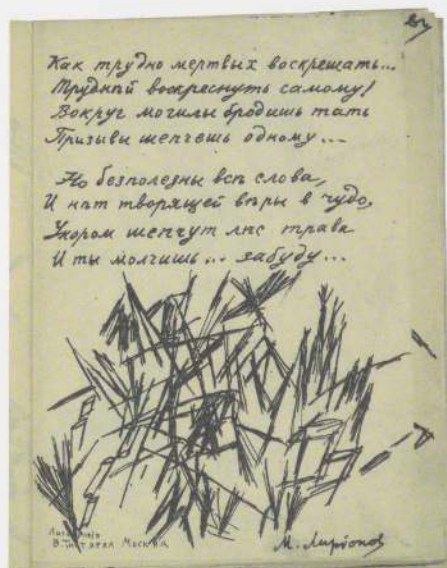 Какъ трудно мертвых воскрешать...
Труднѣй воскреснуть самому!
Вокруг могилы бродишь тать
Призывы шепчешь одному...
Но безполезны всѣ слова,
И нѣт творящей вѣры в чудо,
Укором шепчут лѣс трава
И ты молчишь... забуду...
В. Титяева Москва
М. Ларіонов